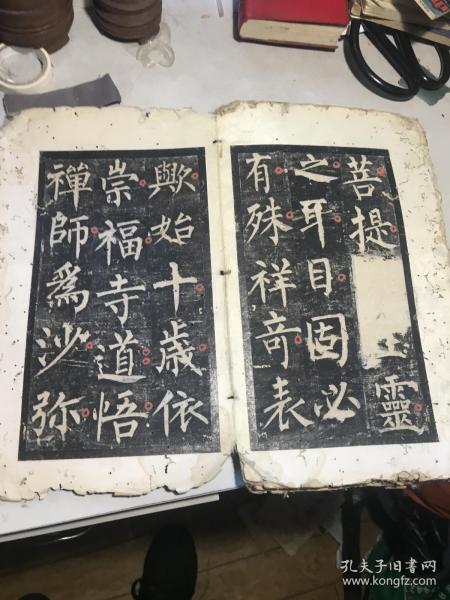 菩提靈
之耳目固必
有殊祥竒表
歟始十歲依
崇福寺道悟
禪師爲沙弥
孔夫子旧书网
www.kongfz.com